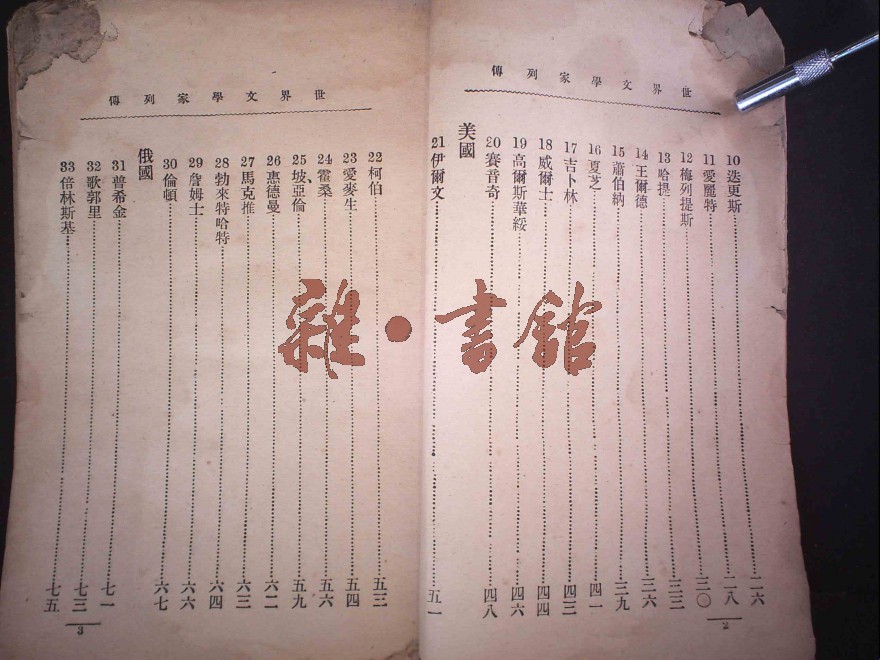 世界文學家列傳
10 迭更斯 二六
11 愛麗特 二八
12 梅列提斯 三〇
13 哈提 三三
14 王爾德 三六
15 蕭伯納 三九
16 夏芝 四一
17 吉卜林 四三
18 威爾士 四四
19 高爾斯華綏 四六
20 賽音奇 四八
美國
21 伊爾文 五一
2
世界文學家列傳
22 柯伯 五三
23 愛麥生 五四
24 霍桑 五六
25 坡、亞倫 五九
26 惠德曼 六二
27 馬克推 六三
28 勃來特哈特 六四
29 詹姆士 六六
30 倫頓 六七
俄國
31 普希金 七一
32 歌郭里 七三
33 倍林斯基 七五
3
雜·書館